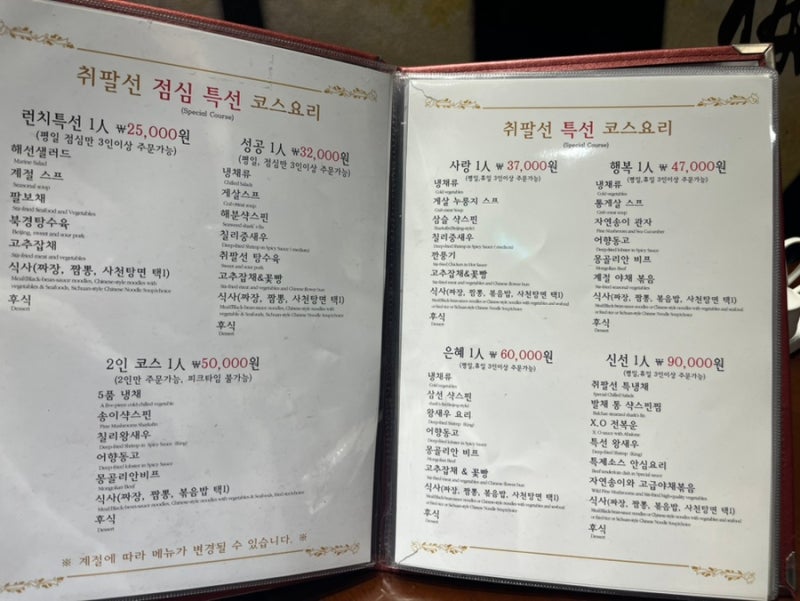 취팔선 점심 특선 코스요리
(Special Course)
런치특선 1人 ₩25,000원
(평일 점심만 3인이상 주문가능)
해선샐러드
Marine Salad
계절 스프
Seasonal soup
팔보채
Stir-fried Seafood and Vegetables
북경탕수육
Beijing, sweet and sour pork
고추잡채
Stir-fried meat and vegetables
식사(짜장, 짬뽕, 사천탕면 택1)
후식
Dessert
성공 1人 ₩32,000원
(평일, 점심만 3인이상 주문가능)
냉채류
Chilled Salads
게살스프
Crab meat soup
해분샥스핀
Seaweed shark's fin
칠리중새우
Deep-fried Shrimp in Spicy Sauce (medium)
취팔선 탕수육
Sweet and sour pork
고추잡채&꽃빵
Stir-fried meat and vegetables and Chinese flower bun
식사(짜장, 짬뽕, 사천탕면 택1)
후식
Dessert
2인 코스 1人 ₩50,000원
(2인만 주문가능, 피크타임 불가능)
5품 냉채
A five-piece cold chilled vegetable
송이샥스핀
Pine Mushrooms Sharksfin
칠리왕새우
Deep-fried Shrimp in Spicy Sauce (king)
어향동고
Deep-fried lobster in Spicy Sauce
몽골리안비프
Mongolian Beef
식사(짜장, 짬뽕, 볶음밥 택1)
후식
Dessert
※ 계절에 따라 메뉴가 변경될 수 있습니다. ※
취팔선 특선 코스요리
(Special Course)
사랑 1人 ₩ 37,000원
(평일,휴일 3인이상 주문가능)
냉채류
Cold vegetables
게살 누룽지 스프
Crab meat Soup
삼슬 샥스핀
Sharksfin(Beijing-style)
칠리중새우
Deep-fried Shrimp in Spicy Sauce (medium)
깐풍기
Stir-fried Chicken in Hot Sauce
고추잡채&꽃빵
Stir-fried meat and vegetables and Chinese flower bun
식사(짜장, 짬뽕, 볶음밥, 사천탕면 택1)
후식
Dessert
행복 1人 ₩ 47,000원
(평일,휴일 3인이상 주문가능)
냉채류
Cold vegetables
통게살 스프
Crab meat soup
자연송이 관자
Pine Mushroom and Sea Cucumber
어향동고
Deep-fried lobster in Spicy Sauce
몽골리안 비프
Mongolian Beef
계절 야채 볶음
Stir-fried seasonal vegetables
식사(짜장, 짬뽕, 볶음밥, 사천탕면 택1)
후식
Dessert
은혜 1人 ₩ 60,000원
(평일,휴일 3인이상 주문가능)
냉채류
Cold vegetables
삼선 샥스핀
왕새우 요리
Deep-fried Shrimp (king)
어향동고
Deep-fried lobster in Spicy Sauce
몽골리안 비프
Mongolian Beef
고추잡채 & 꽃빵
Stir-fried meat and vegetables and Chinese flower bun
식사(짜장, 짬뽕, 볶음밥, 사천탕면 택1)
후식
Dessert
신선 1人 ₩ 90,000원
(평일,휴일 3인이상 주문가능)
취팔선 특냉채
Special Chilled Salads
발채 통 샥스핀찜
X.O 전복운
X.O sauce with Abalone
특선 왕새우
Deep-fried Shrimp (king)
특제소스 안심요리
Beef tenderloin dish in Special sauce
자연송이와 고급야채볶음
Wild Pine Mushrooms and Stir-fried high-quality vegetables
식사(짜장, 짬뽕, 볶음밥, 사천탕면 택1)
후식
Dessert